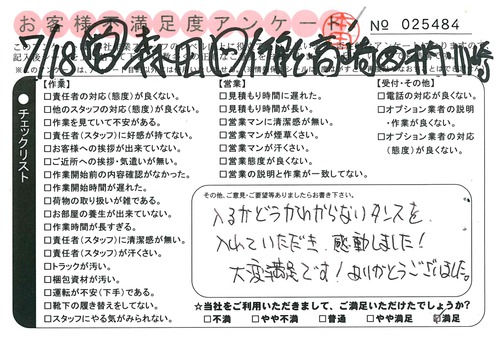 お客様不満足度アンケート
No 025484
7/18
チェックリスト
【作業】
□責任者の対応(態度)が良くない。
□他のスタッフの対応(態度)が良くない。
□作業を見ていて不安がある。
□責任者(スタッフ)に好感が持てない。
□お客様への挨拶が出来ていない。
□ご近所への挨拶・気遣いが無い。
□作業開始前の内容確認がなかった。
□作業開始時間が遅れた。
□荷物の取り扱いが雑である。
□お部屋の養生が出来ていない。
□作業時間が長すぎる。
□責任者(スタッフ)に清潔感が無い。
□責任者(スタッフ)が汗くさい。
□トラックが汚い。
□梱包資材が汚い。
□運転が不安(下手)である。
□靴下の履き替えをしてない。
□スタッフにやる気がみられない。
【営業】
□見積もり時間に遅れた。
□見積もり時間が長い。
□営業マンに清潔感が無い。
□営業マンが煙草くさい。
□営業マンが汗くさい。
□営業態度が良くない。
□営業の説明と作業が一致してない。
【受付・その他】
□電話の対応が良くない。
□オプション業者の説明
・作業が良くない。
□オプション業者の対応
(態度)が良くない。
その他、ご意見・ご要望等ありましたらお書き下さい。
入るかどうかわからないタンスを
入れていただき、感動しました!
大変満足です!ありがとうございました。
☆当社をご利用いただきまして、ご満足いただけたでしょうか?
□不満 □やや不満 □普通 □やや満足 ☑満足